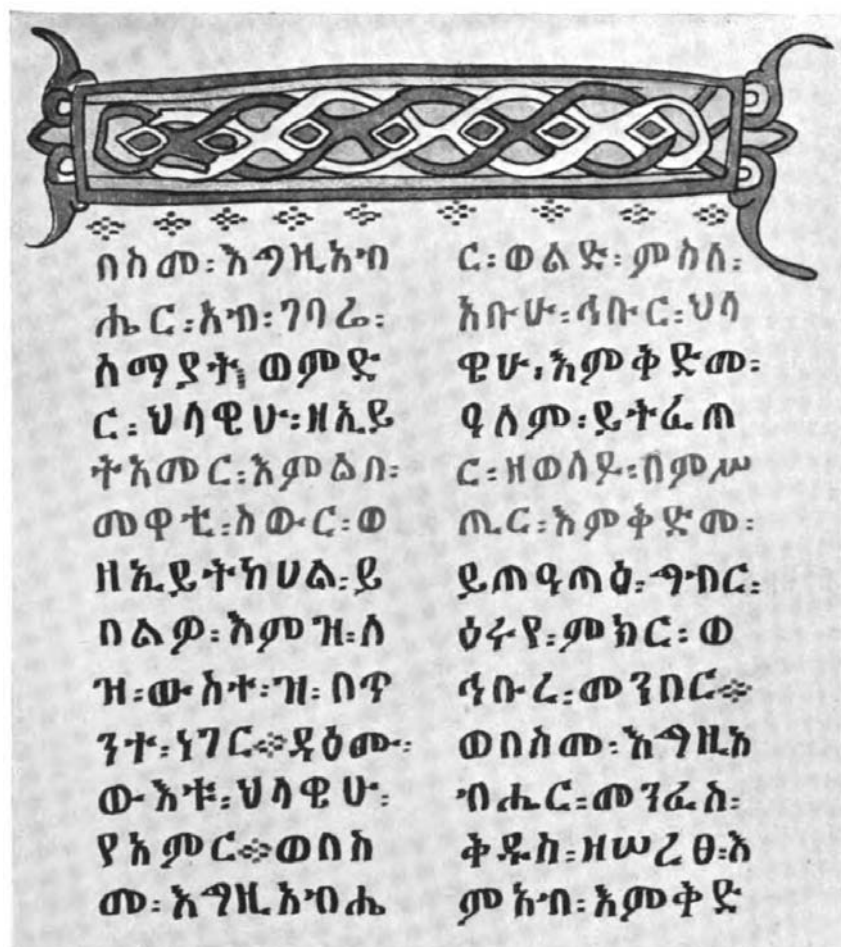 በስመ፡እግዚአብ
ሔር፡አብ፡ገባሬ፡
ሰማያት፡ወምድ
ር፡ህላዌሁ፡ዘኢይ
ትአመር፡እምልበ፡
መዋቲ፡ስውር፡ወ
ዘኢይትከሀል፡ይ
በልዎ፡እምዝ፡ለ
ዝ፡ውስተ፡ዝ፡በጥ
ንተ፡ነገር፨ዳዕሙ፡
ውእቱ፡ህላዌሁ፡
የአምር፨ወበስ
መ፡እግዚአብሔ
ር፡ወልድ፡ምስለ፡
አቡሁ፡ኅቡር፡ህላ
ዌሁ፡እምቅድመ፡
ዓለም፡ይትፈጠ
ር፡ዘወለዶ፡በምሥ
ጢር፡እምቅድመ፡
ይጠዓጠዕ፡ግብር፡
ዕሩየ፡ምክር፡ወ
ኅቡረ፡መንበር፨
ወበስመ፡እግዚአ
ብሔር፡መንፈስ፡
ቅዱስ፡ዘሠረፀ፡እ
ምአብ፡እምቅድ